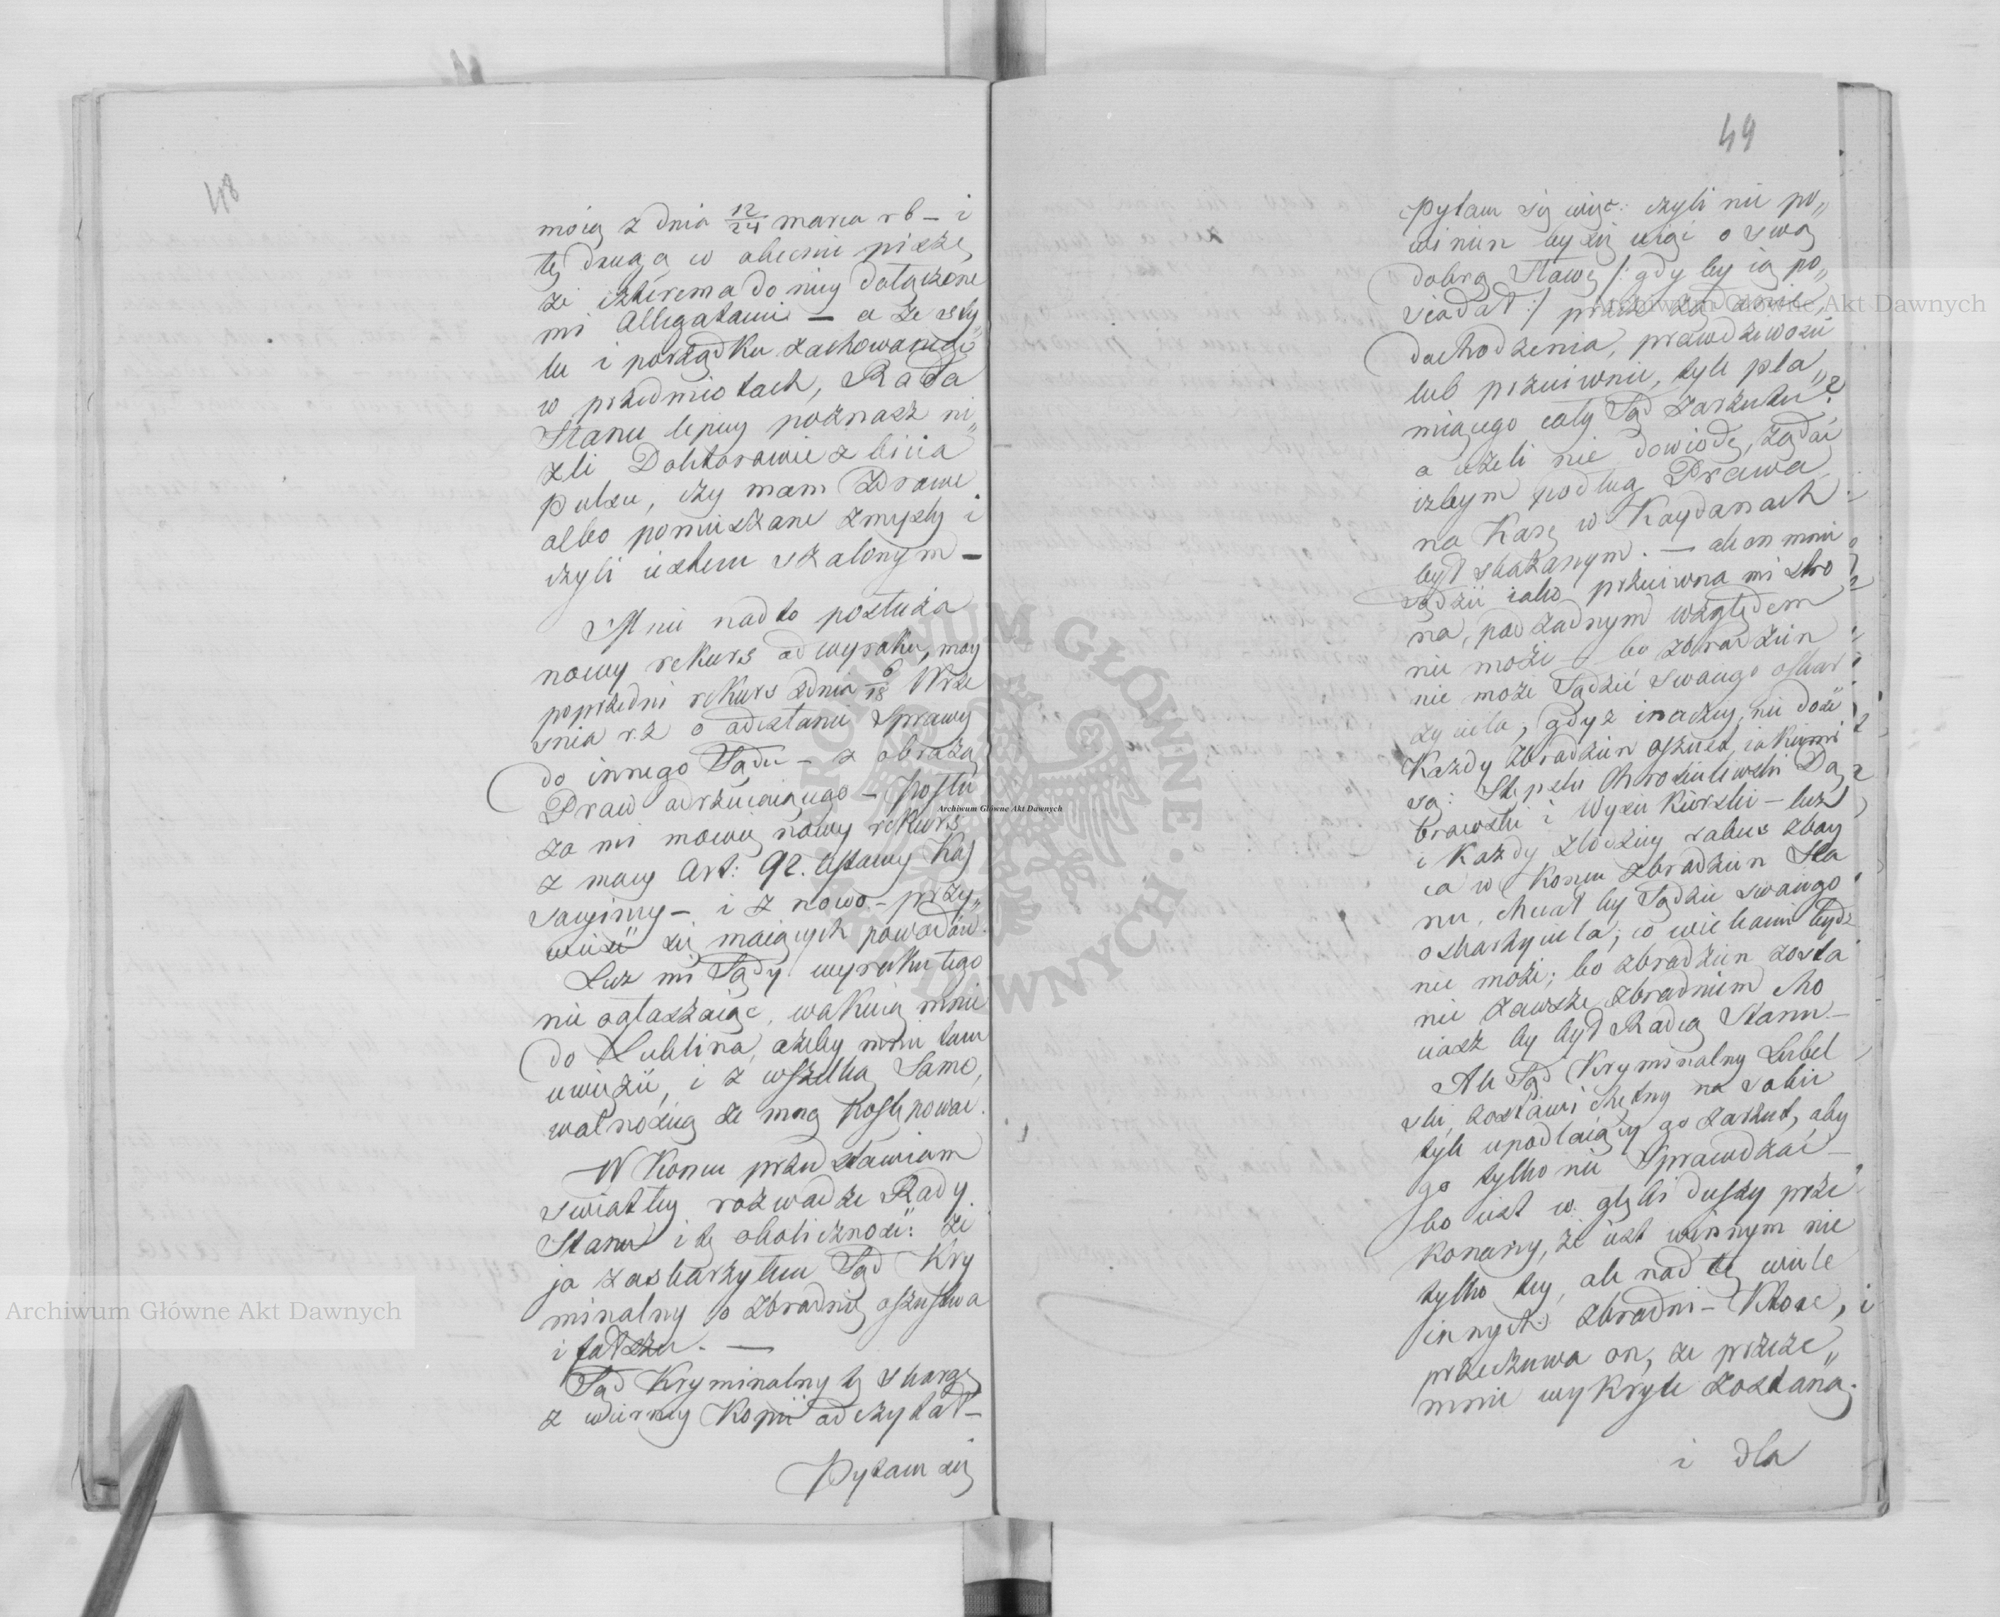 48
moią z dnia 12/24 marca r b – i
tę drugą co obecnie piszę,
ze czterema do niey dołączone
mi Allegatami – a ze sty„
lu i porządku zachowanego
w przedmiotach, Rada
Stanu lepiey poznasz ni„
żli Doktorowie z bicia
pulsu, czy mam zdrowe
albo pomieszane zmysły i
czyli iestem szalonym –
Mnie nadto posłuża
nowy rekurs od wyroku, moy
poprzedni rekurs z dnia 6/18 Wrze
śnia r. z o odesłanie sprawy
do innego Sądu – z obrazą
Praw odrzucaiącego – Posłu
ża mi mowię nowy rekurs
z mocy Art: 92. Ustawy Kas
sacyiney – i z nowo – przy„
wieść się maiących powodów.
Lecz mi Sądy wyroku tego
nie ogłaszaiąc, wakuią mnie
do Lublina, ażeby mnie tam
uwięzić, i z wszelką Samo,
wolnością ze mną postępować.
W Koncu przedstawiam
swiatłey rozwadze Rady
Stanu i tę okoliczność: że
ja zaskarżyłem Sąd Kry
minalny o zbrodnię oszustwa
i fałszu. —
Sąd Kryminalny tę skargę
z wierney Kopii odczytał –
Pytam się
49
Pytam się więc: czyli nie po„
winien by się uiąć o swą
dobrą Sławę /: gdy by ią po„
siadał :/ przez żądanie,
dochodzenia, prawdziwości
lub przeciwnie, tyle pla„
miącego cały Sąd zarzutu?
a ieżeli nie dowiodę, żądać
iżbym podług Prawa
na Karę w Kaydanach
był skazanym. — ale on mnie
sądzić iako przeciwna mi stro
na, pod żadnym względem
nie może – bo zbrodzien
nie może Sądzić swoiego oskar
życiela, gdyż inaczey, nie dość
Każdy zbrodzien oszust, iakiemi
są: Skępski Chrościelewski Dą
browski i Wysu Kierski – lecz
i Każdy złodziey rabus zboy
ca w Koncu zbrodzien Sta
nu, chciał by Sądzić swoiego
oskarżyciela; co wiekami bydź
nie może; bo zbrodzien zosta
nie zawsze zbrodniem cho
ciasz by był Radcą Stanu –
Ale Sąd Kryminalny Lubel
ski, zostawi chętny na sobie
tyle upodlaiący go zarzut, aby
go tylko nie Sprawdzać –
bo iest w głębi duszy prze
konany, że iest winnym nie
tylko tey, ale nad tę wiele
innych zbrodni – Które,
przeczuwa on, że przeze„
mnie wykryte zostaną.
i dla
Archiwum Główne Akt Dawnych
Archiwum Główne Akt Dawnych
Archiwum Główne Akt Dawnych
ARCHIWUM GŁÓWNE AKT DAWNYCH